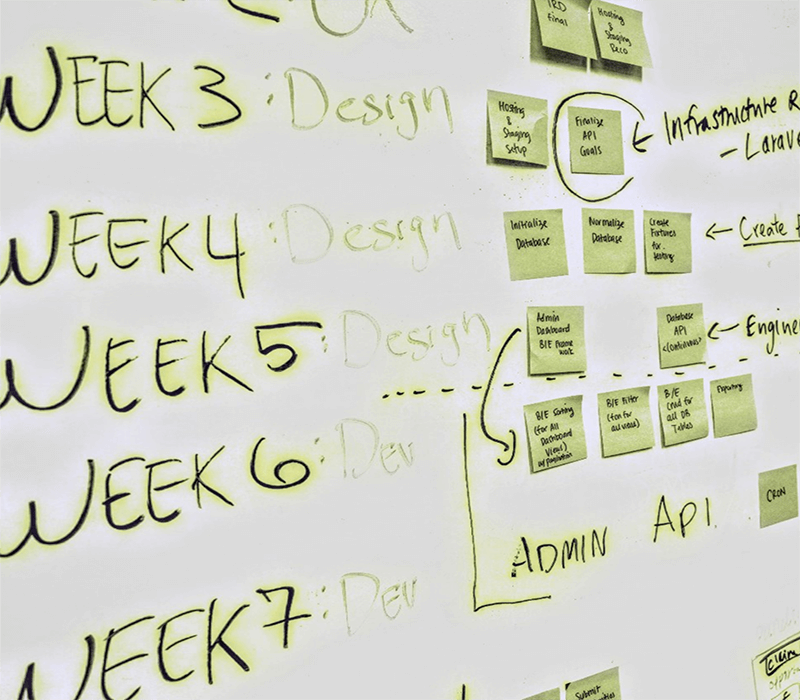 IRD
final
Hosting
&
Staging
Reco
WEEK 3 : Design
Hosting
&
Staging
Setup
Finalize
API
Goals
← Infrastructure R
– Larave
WEEK 4 : Design
Initialize
Database
Normalize
Database
Create
Fixtures
for
testing
← Create f
WEEK 5 : Design
Admin
Dashboard
B/E Frame
work
Database
API
<continues>
← Engine
WEEK 6 : Dev
B/E Sorting
(for All
Dashboard
Views)
w/pagination
B/E Filter
(for
all views)
B/E
for
all DB
Tables
Exporting
ADMIN API
CRON
WEEK 7 : Dev
Submit